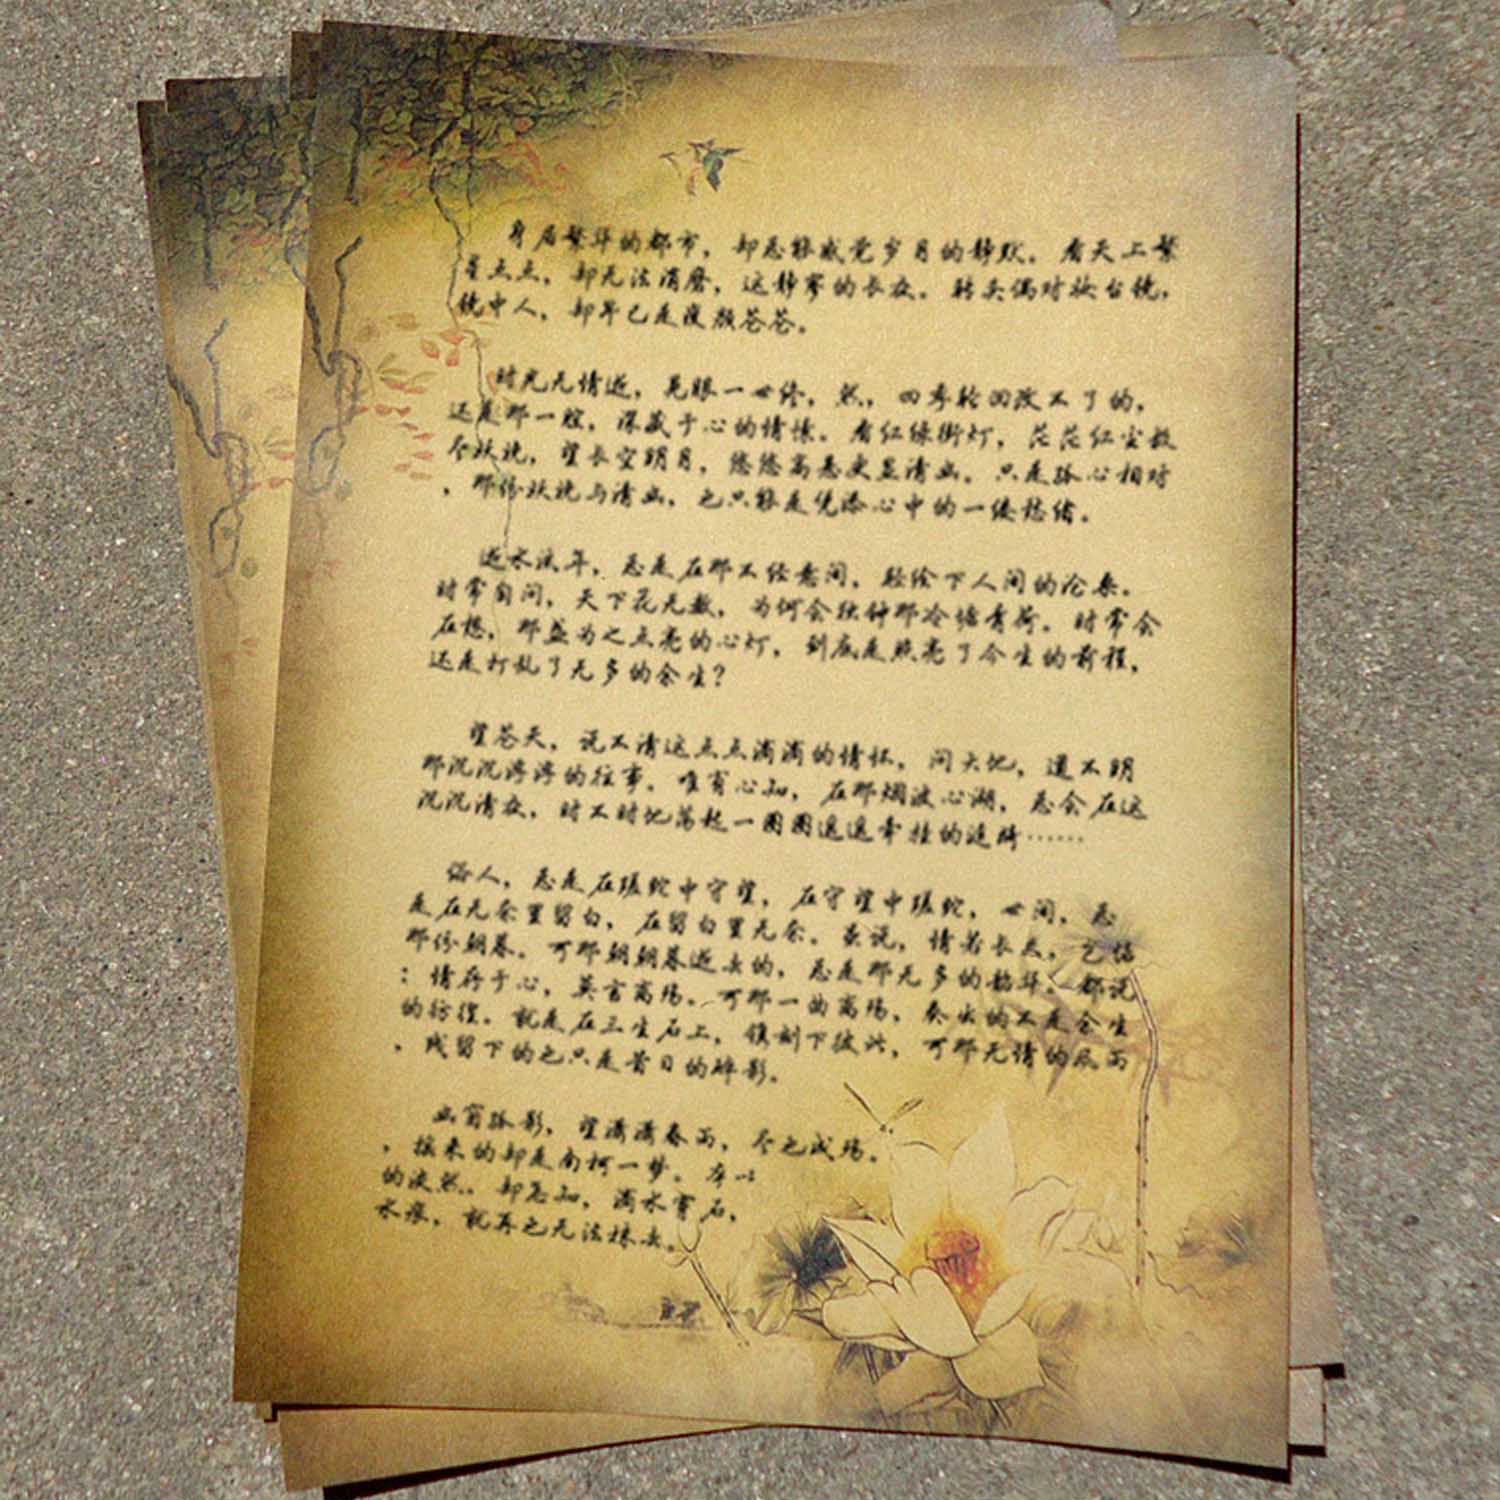 身居繁华的都市，却总能感觉岁月的静默。看天上繁
星点点，却无法消磨，这静寥的长夜。转头偶对妆台镜，
镜中人，却早已是鬓颜苍苍。
时光无情逝，晃眼一世终，然，四季轮回改不了的，
还是那一腔，深藏于心的情愫。看红绿街灯，茫茫红尘数
尽妖娆，望长空明月，悠悠高悬更显清幽。只是孤心相对
，那份妖娆与清幽，也只能是凭添心中的一缕愁绪。
逝水流年，总是在那不经意间，轻绘下人间的沧桑。
时常自问，天下花无数，为何会独钟那冷塘青荷。时常会
在想，那盏为之点亮的心灯，到底是照亮了今生的前程，
还是打乱了无多的余生？
望苍天，说不清这点点滴滴的情怀，问大地，道不明
那沉沉浮浮的往事。唯有心知，在那烟波心湖，总会在这
沉沉清夜，时不时地荡起一圈圈遥遥牵挂的涟漪……
俗人，总是在蹉跎中守望，在守望中蹉跎，世间，总
是在无奈里留白，在留白里无奈。虽说，情若长久，乞惦
那份朝暮。可那朝朝暮逝去的，总是那无多的韶华。都说
：情存于心，莫言离殇。可那一曲离殇，奏出的不是余生
的彷徨。就是在三生石上，镌刻下彼此，可那无情的风雨
，残留下的也只是昔日的碎影。
幽窗孤影，望潇潇春雨，尽也成殇。
，换来的却是南柯一梦。本以
的淡然。却怎知，滴水穿石，
水痕，就再也无法抹去。